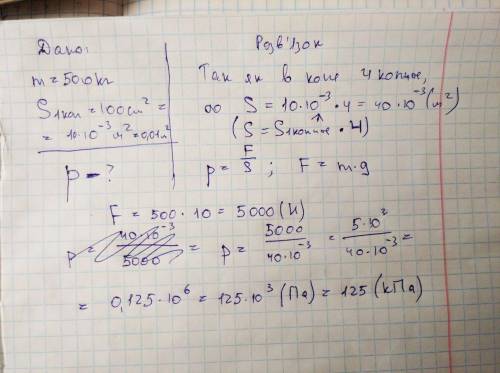 Дано:
m = 500 кг
S1коп = 100 см² =
= 10·10⁻³ м² = 0,01 м²
p - ?
Розв'язок
Так як в коня 4 копита,
то S = 10·10⁻³·4 = 40·10⁻³ (м²)
(S = S1копита · 4)
p = F/S ; F = m·g
F = 500·10 = 5000 (Н)
p = 40·10⁻³/5000 = p = 5000/40·10⁻³ = 5·10³/40·10⁻³ =
= 0,125·10⁶ = 125·10³ (Па) = 125 (кПа)